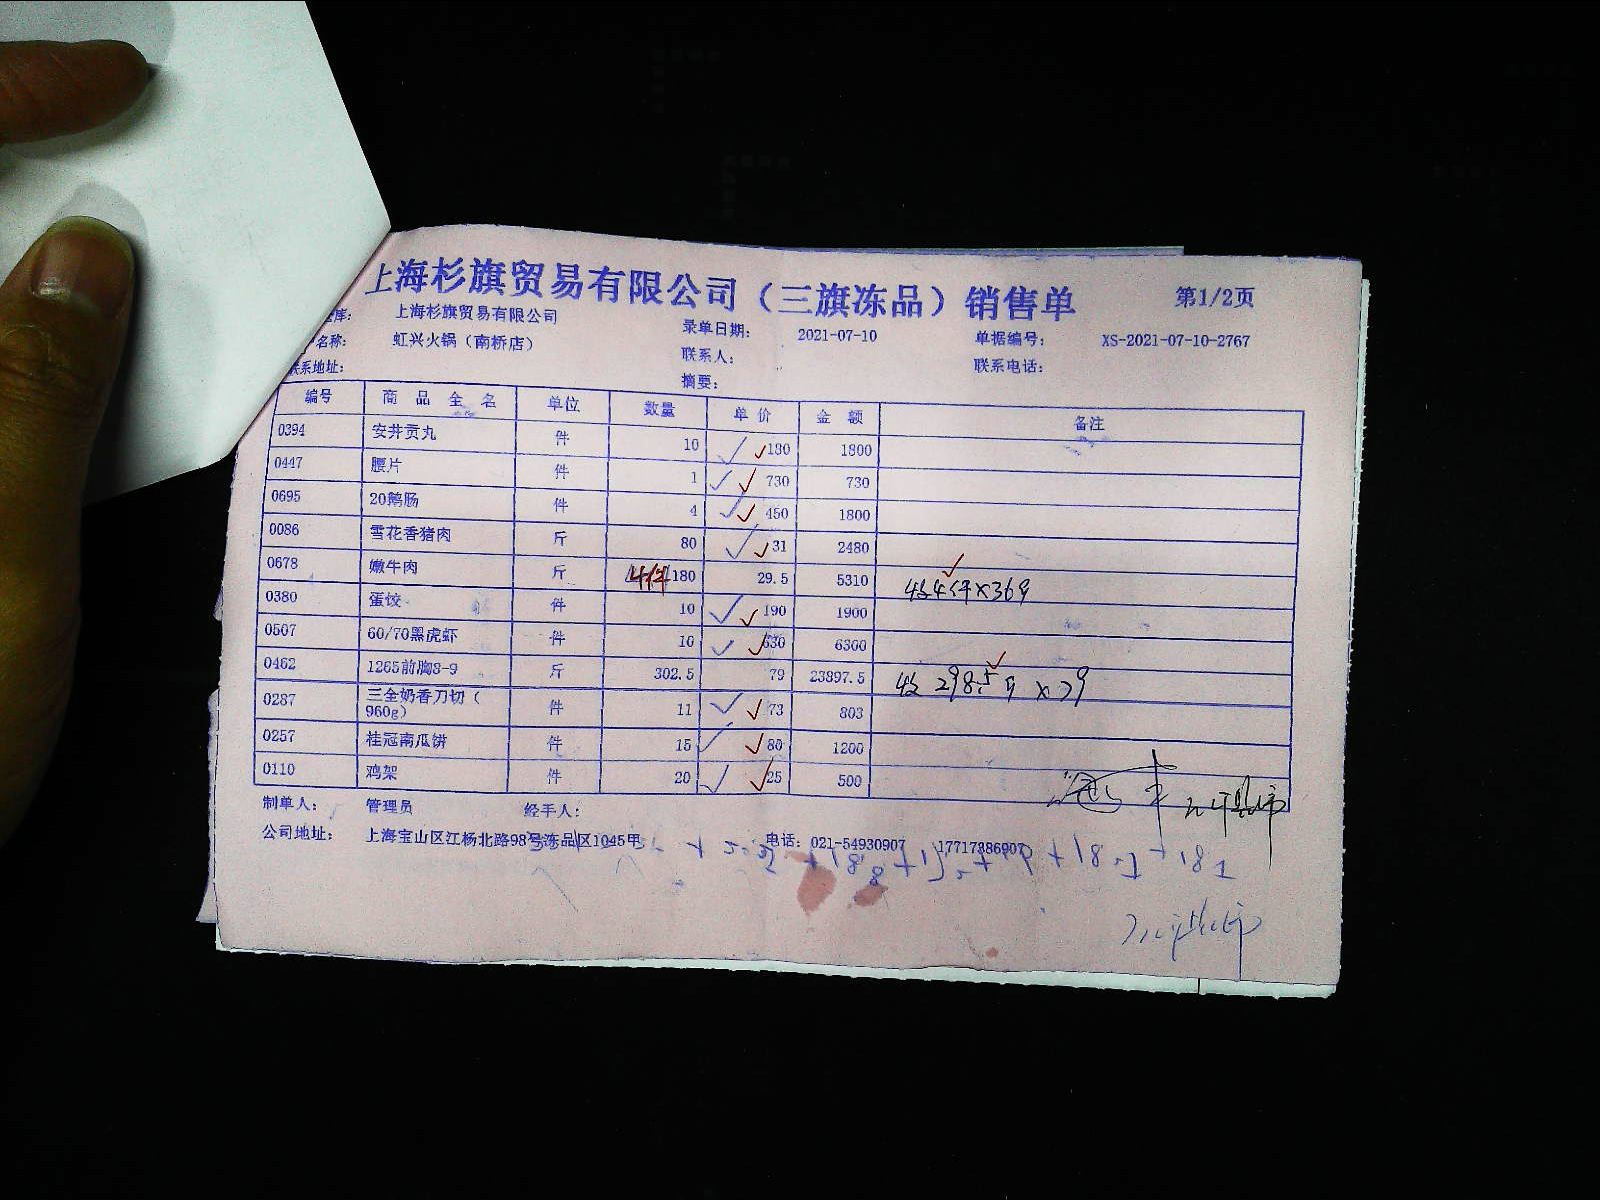 上海杉旗贸易有限公司（三旗冻品）销售单 第1/2页
库： 上海杉旗贸易有限公司 录单日期： 2021-07-10 单据编号： XS-2021-07-10-2767
名称： 虹兴火锅（南桥店） 联系人： 联系电话：
联系地址： 摘要：
编号 商品全名 单位 数量 单价 金额 备注
0394 安井贡丸 件 10 180 1800
0447 腰片 件 1 730 730
0695 20鹅肠 件 4 450 1800
0086 雪花香猪肉 斤 80 31 2480
0678 嫩牛肉 斤 4件 180 29.5 5310 收4件×369
0380 蛋饺 件 10 190 1900
0507 60/70黑虎虾 件 10 630 6300
0462 1265前胸8-9 斤 302.5 79 23897.5 收 298.5斤 × 79
0287 三全奶香刀切（960g） 件 11 73 803
0257 桂冠南瓜饼 件 15 80 1200
0110 鸡架 件 20 25 500
制单人： 管理员 经手人：
公司地址： 上海宝山区江杨北路98号冻品区1045甲 电话：021-54930907 17717386907